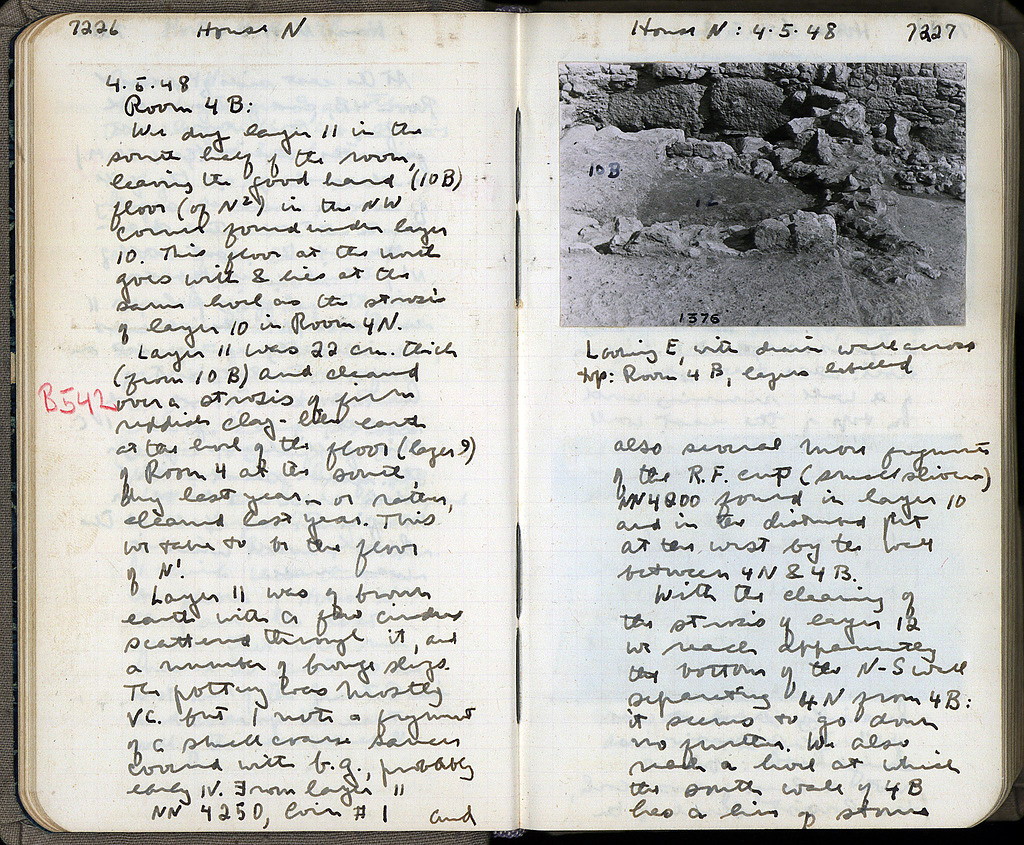 7226 House N
4.5.48
Room 4 B:
We dug layer 11 in the
south half of the room,
leaving the good hard (10B)
floor (of N²) in the NW
corner found under layer
10. This floor at the north
goes with & lies at the
same level as the strosis
of layer 10 in Room 4N.
Layer 11 was 22 cm. thick
(from 10 B) and cleaned
B542
over a strosis of firm
reddish clay-like earth
at the level of the floor (layer 9)
of Room 4 at the south,
dug last year – or rather,
cleaned last year. This
we take to be the floor
of N¹.
Layer 11 was of brown
earth with a few cinders
scattered through it, and
a number of bronze slugs.
The pottery was mostly
VC. but I note a fragment
of a small coarse saucer
covered with b.g., probably
early IV. From layer 11
NN 4250, Coin #1 and
House N: 4.5.48 7227
10 B
12
1376
Looking E, with drain wall across
top: Room 4 B, layers labelled
also several more fragments
of the R.F. cup (small slivers)
NN4200 found in layer 10
and in the disturbed pit
at the west by the wall
between 4N & 4B.
With the clearing of
the strosis of layer 12
we reach apparently
the bottom of the N-S wall
separating 4N from 4B:
it seems to go down
no further. We also
reach a level at which
the south wall of 4B
has a line of stones